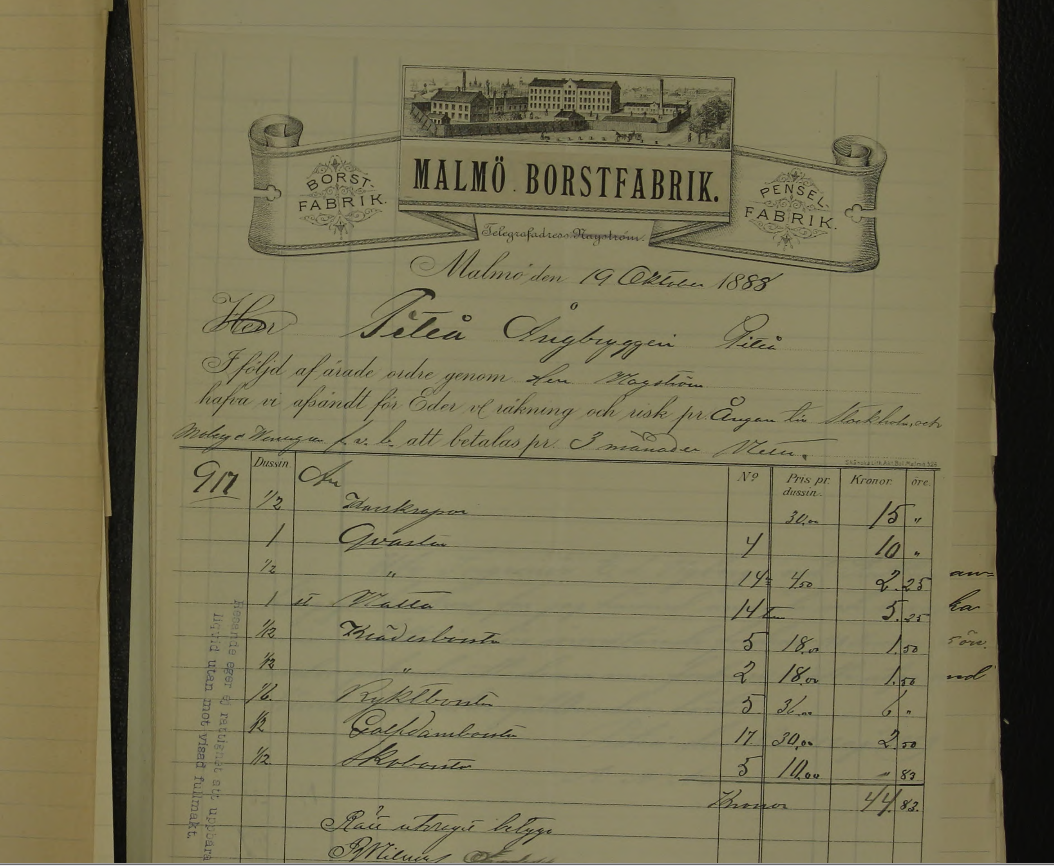 BORST-
FABRIK.
MALMÖ BORSTFABRIK.
PENSEL
FABRIK.
Telegrafadress: Hagström.
Malmö den 19 Oktober 1888
Herr Piteå Ångbryggeri Piteå
I följd af ärade ordre genom Herr Hagström
hafva vi afsändt för Eder räkning och risk pr Ångan till Stockholm och
f. v. b. att betalas pr. 3 månader Netto.
Dussin Nº Pris pr. dussin. Kronor. öre.
917 An
1/2 30.00 15 "
1 Qvastar 4 10 "
1/2 " 14 4.50 2.25
1 st Matta 14 5.25
1/12 Klädesborstar 5 18.00 1.50
1/12 " 2 18.00 1.50
1/6 Ryktborstar 5 36.00 6 "
1/12 Golfdamborstar 17 30.00 2.50
1/12 Skoborstar 5 10.00 " 83
Kronor 44.83
Rätt utdraget betygar
Resande eger ej rättighet att uppbära
liqvid utan mot visad fullmakt.